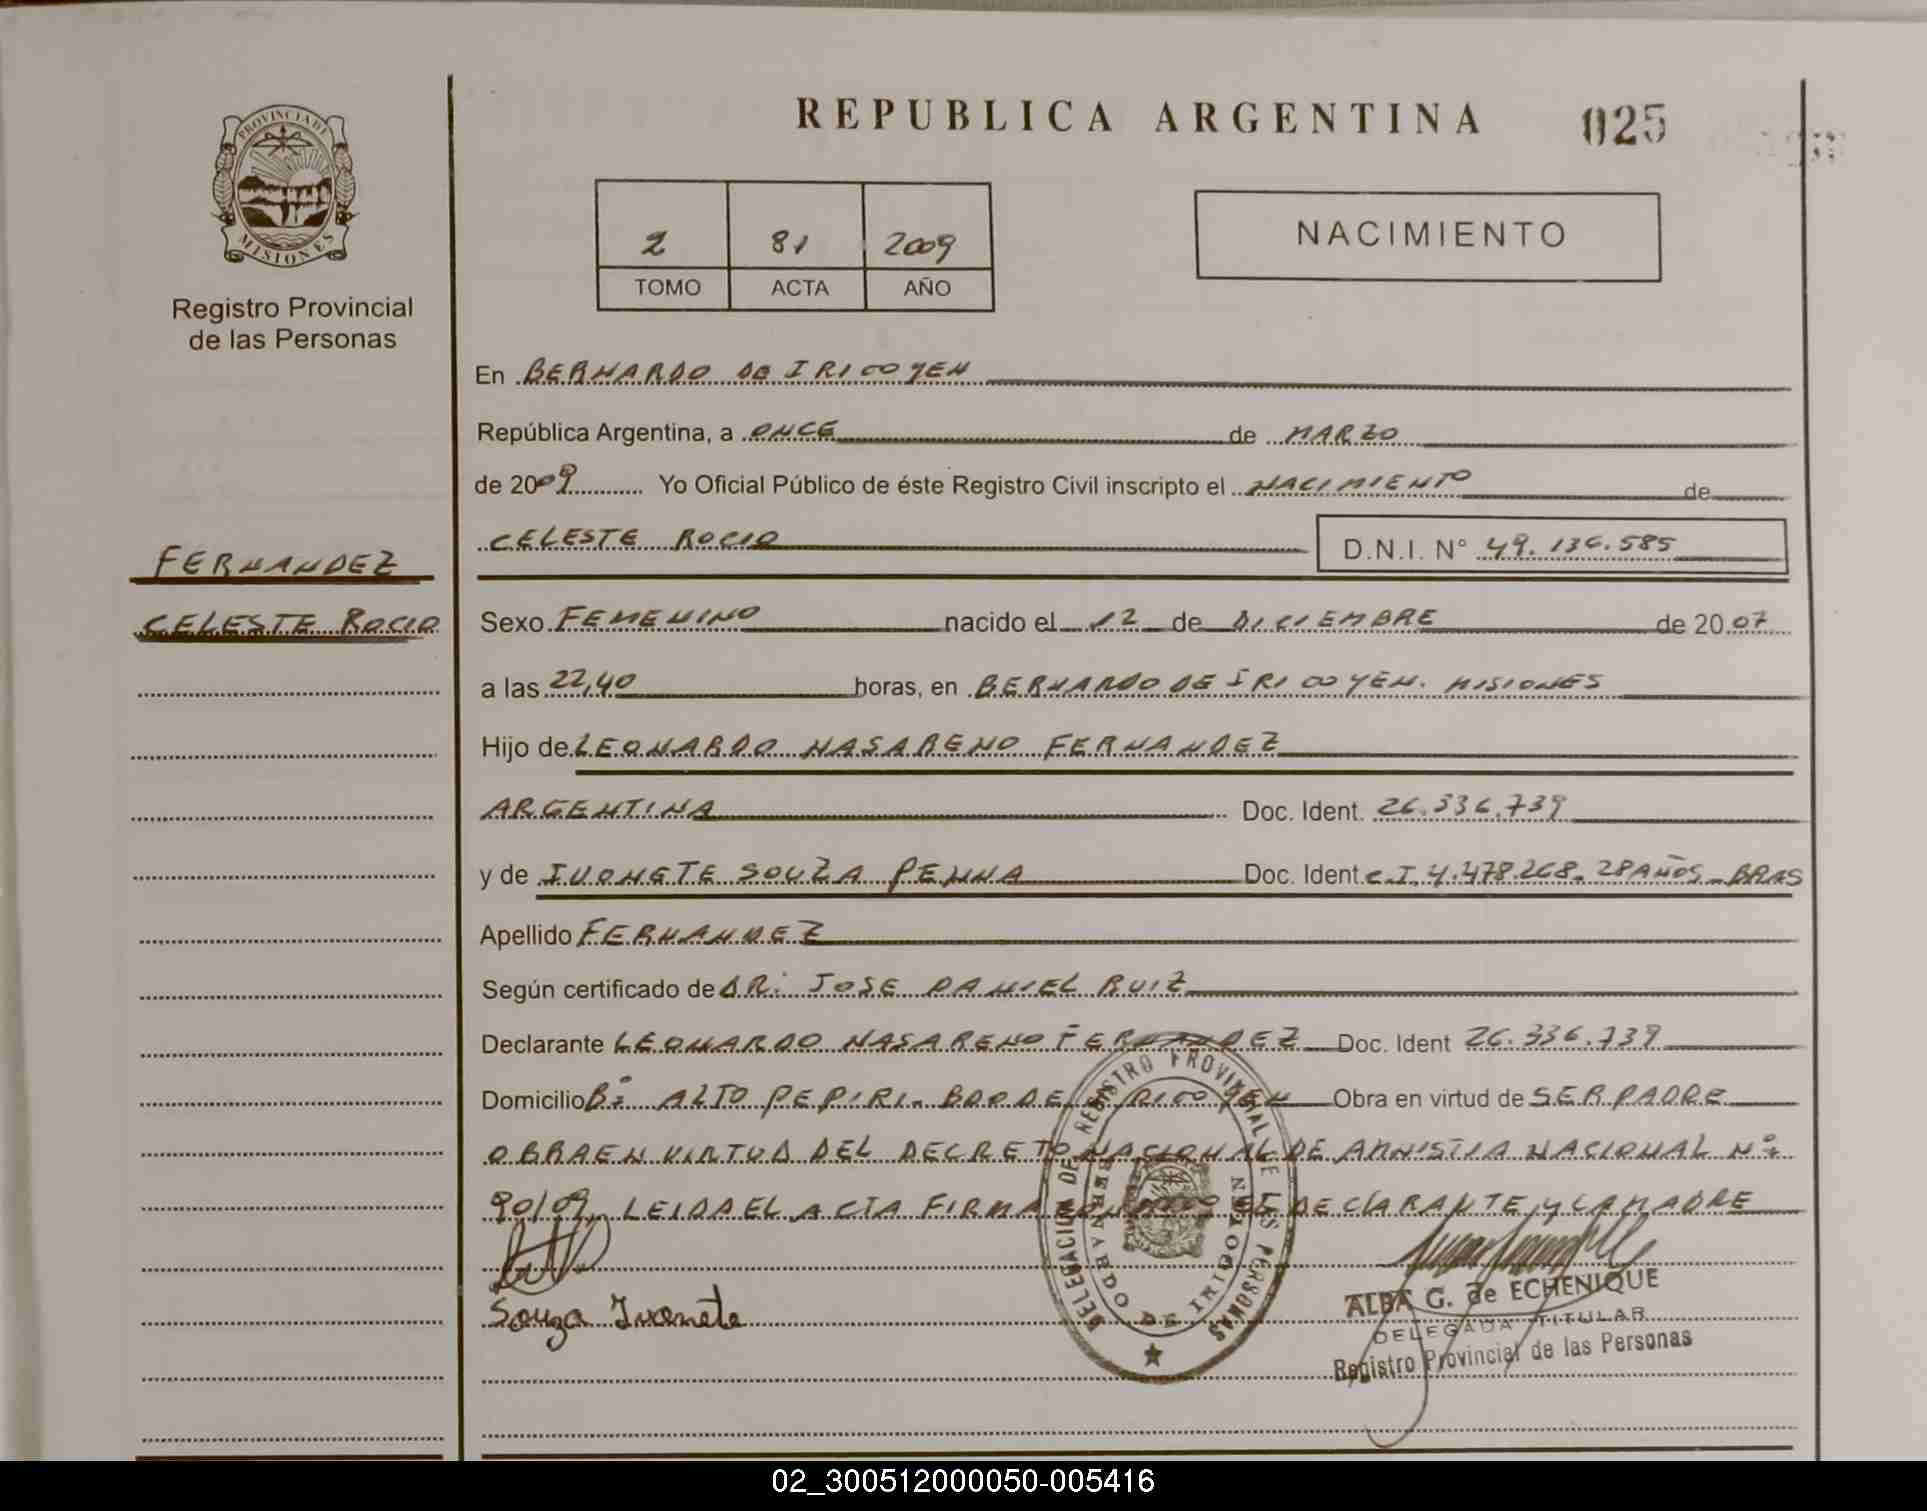 REPUBLICA ARGENTINA
025
PROVINCIA DE
MISIONES
Registro Provincial
de las Personas
2 81 2009
TOMO ACTA AÑO
NACIMIENTO
En BERNARDO DE IRIGOYEN
República Argentina, a ONCE de MARZO
de 2009 Yo Oficial Público de éste Registro Civil inscripto el NACIMIENTO de
CELESTE ROCIO D.N.I. N° 49.136.585
FERNANDEZ
CELESTE ROCIO
Sexo FEMENINO nacido el 12 de DICIEMBRE de 2007
a las 22,40 horas, en BERNARDO DE IRIGOYEN. MISIONES
Hijo de LEONARDO NASARENO FERNANDEZ
ARGENTINA Doc. Ident. 26.336.739
y de IVONETE SOUZA PENNA Doc. Ident C.I. 4.478.268. 28 AÑOS - BRAS
Apellido FERNANDEZ
Según certificado de DR: JOSE DANIEL RUIZ
Declarante LEONARDO NASARENO FERNANDEZ Doc. Ident 26.336.739
Domicilio B° ALTO PEPIRI. BDO DE IRIGOYEN Obra en virtud de SER PADRE
OBRA EN VIRTUD DEL DECRETO NACIONAL DE AMNISTIA NACIONAL N°
90/09. LEIDA EL ACTA FIRMA EL DECLARANTE Y LA MADRE
Souza Ivonete
DELEGACION DE REGISTRO PROVINCIAL DE LAS PERSONAS
BERNARDO DE IRIGOYEN
ALBA G. de ECHENIQUE
DELEGADA TITULAR
Registro Provincial de las Personas
02_300512000050-005416